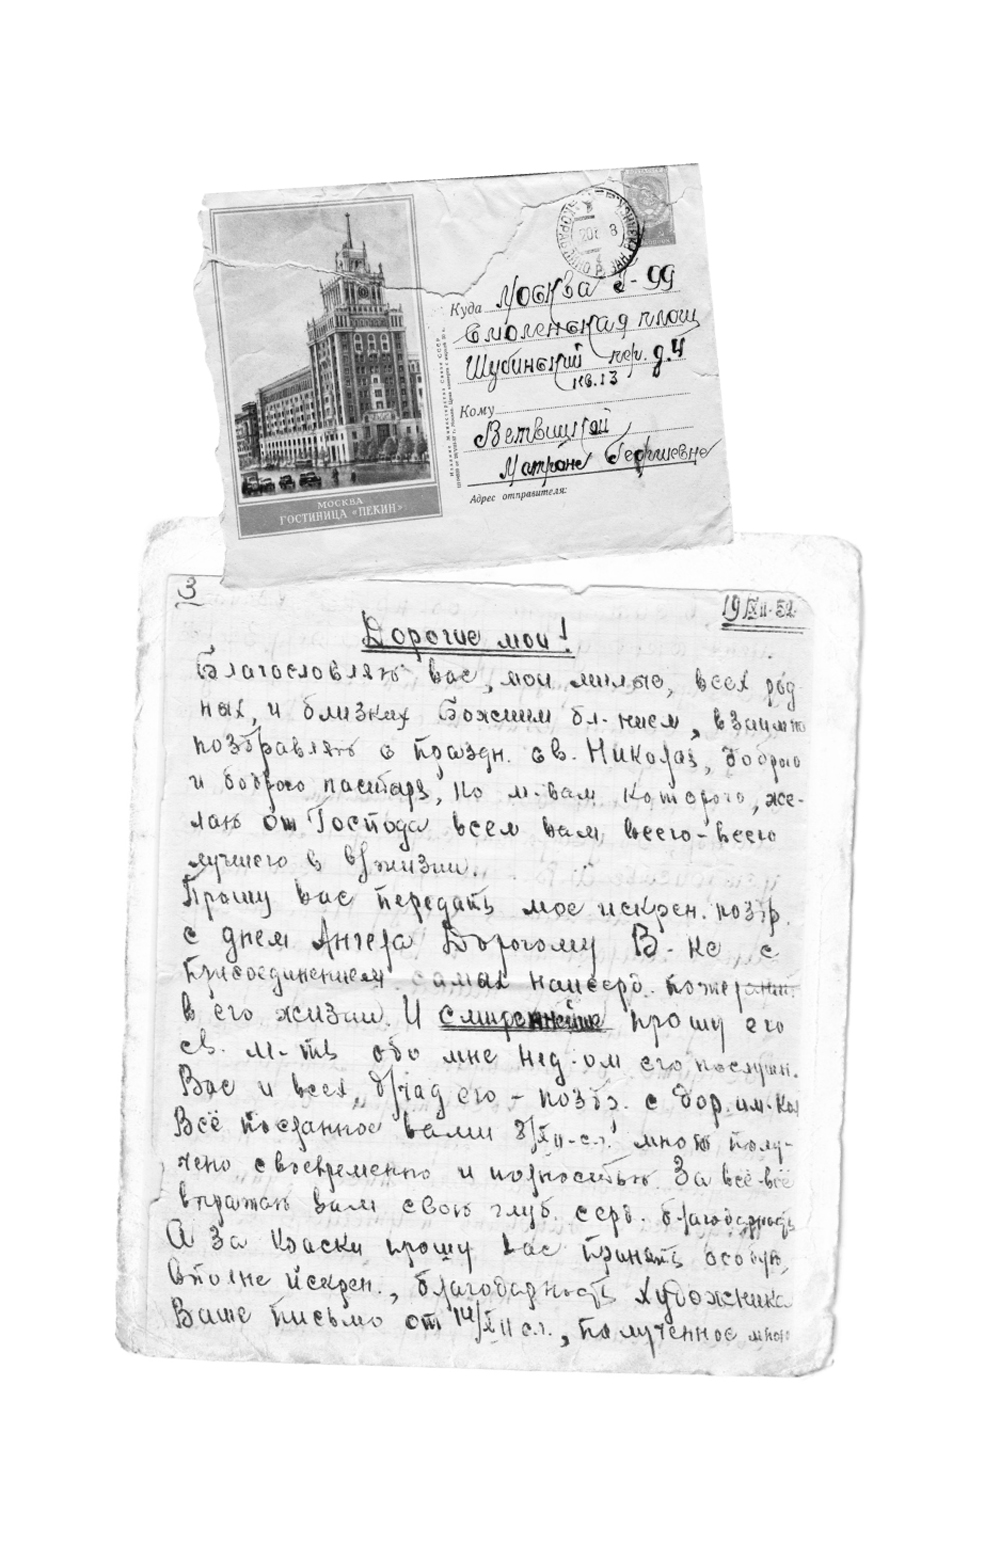 Куда Москва Г-99
Смоленская площ
Шубинский пер. д.4
кв.13
Кому
Ветвицкой
Матроне Георгиевне
Адрес отправителя:
МОСКВА
ГОСТИНИЦА «ПЕКИН»
3
19/XII-52.
Дорогие мои!
Благословляю вас, мои милые, всех род-
ных, и близких Божиим бл-нием, взаимно
поздравляю с праздн. св. Николая, доброго
и бодрого пастыря, по м-вам которого, же-
лаю от Господа всем вам всего-всего
лучшего в жизни.
Прошу вас передать мое искрен. поздр.
с днем Ангела Дорогому В-ке с
присоединением самых наисерд. пожеланий
в его жизни. И смиреннейше прошу его
св. м-тв обо мне нед-ом его послушн.
Вас и всех чад его - поздр. с дор. им-ком
Всё посланное вами 8/XII-с.г. мною полу-
чено своевременно и полностью. За всё-всё
выражаю вам свою глуб. серд. благодарность
А за краски прошу вас принять особую,
вполне искрен., благодарность художника
Ваше письмо от 14/XII с.г., полученное мною